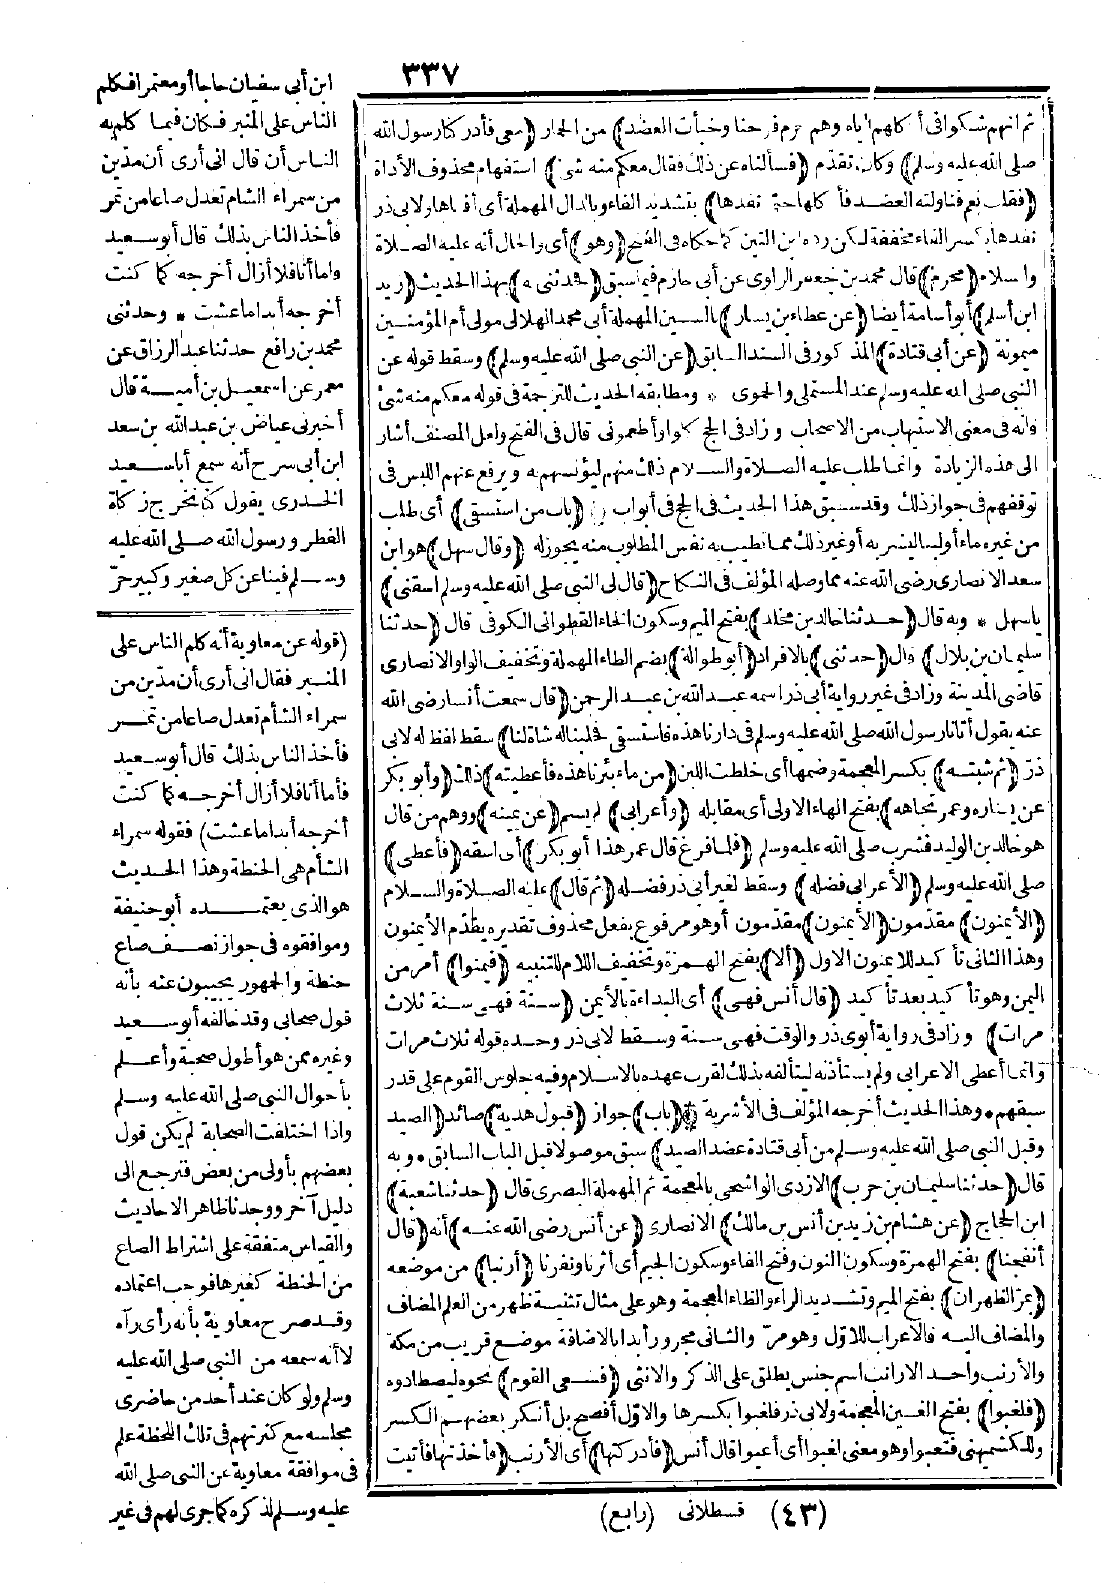 ٣٣٧
ثم انهم شكوا فى أكلهم اياه وهم حرم فرحنا وخبأت العضد) من الحمار (معى فأدركنا رسول الله
صلى الله عليه وسلم) وكان تقدّم (فسألناه عن ذلك فقال معكم منه شئ) استفهام محذوف الأداة
(فقلت نعم فناولته العضد فأكلها حتى نفدها) بتشديد الفاء وبالدال المهملة أى أفناها ولابى ذر
نفدها بكسر الفاء مخففة لكن رده ابن التين كما حكاه فى الفتح (وهو) أى والحال أنه عليه الصلاة
والسلام (محرم) قال محمد بن جعفر الراوى عن أبى حازم فيما سبق (فحدثنى به) بهذا الحديث (زيد
ابن أسلم) أبو أسامة أيضا (عن عطاء بن يسار) بالسين المهملة أبى محمد الهلالى مولى أم المؤمنين
ميمونة (عن أبى قتادة) المذكور فى السند السابق (عن النبى صلى الله عليه وسلم) وسقط قوله عن
النبى صلى الله عليه وسلم عند المستملى والحموى * ومطابقة الحديث للترجمة فى قوله معكم منه شئ
فانه فى معنى الاستيهاب من الاصحاب وزاد فى الحج كلوا وأطعمونى قال فى الفتح ولعل المصنف أشار
الى هذه الزيادة وانما طلب عليه الصلاة والسلام ذلك منهم ليؤنسهم به ويرفع عنهم اللبس فى
توقفهم فى جواز ذلك وقد سبق هذا الحديث فى الحج فى أبواب (باب من استسقى) أى طلب
من غيره ماء أو لبنا ليشربه أو غير ذلك مما تطيب به نفس المطلوب منه يجوز له (وقال سهل) هو ابن
سعد الانصارى رضى الله عنه مما وصله المؤلف فى النكاح (قال لى النبى صلى الله عليه وسلم اسقنى)
ياسهل * وبه قال (حدثنا خالد بن مخلد) بفتح الميم وسكون الخاء القطوانى الكوفى قال (حدثنا
سليمان بن بلال) قال (حدثنى) بالافراد (أبو طوالة) بضم الطاء المهملة وتخفيف الواو الانصارى
قاضى المدينة وزاد فى غير رواية أبى ذر اسمه عبد الله بن عبد الرحمن (قال سمعت أنسا رضى الله
عنه يقول أتانا رسول الله صلى الله عليه وسلم فى دارنا هذه فاستسقى فحلبنا له شاة لنا) سقط لفظ له لابى
ذرّ (ثم شبته) بكسر المعجمة وضمها أى خلطت اللبن (من ماء بئرنا هذه فأعطيته) ذلك (وأبو بكر
عن يساره وعمر تجاهه) بفتح الهاء الاولى أى مقابله (وأعرابى) لم يسم (عن يمينه) ووهم من قال
هو خالد بن الوليد فشرب صلى الله عليه وسلم (فلما فرغ قال عمر هذا أبو بكر) أى اسقه (فأعطى)
صلى الله عليه وسلم (الأعرابى فضله) وسقط لغير أبى ذر فضله (ثم قال) عليه الصلاة والسلام
(الأيمنون) مقدّمون (الأيمنون) مقدّمون أو هو مرفوع بفعل محذوف تقديره يقدّم الأيمنون
وهذا الثانى تأكيد للايمنون الاول (ألا) بفتح الهمزة وتخفيف اللام للتنبيه (فيمنوا) أمر من
اليمن وهو تأكيد بعد تأكيد (قال أنس فهى) أى البداءة بالأيمن (سنة فهى سنة ثلاث
مرات) وزاد فى رواية أبوى ذر والوقت فهى سنة وسقط لابى ذر وحده قوله ثلاث مرات
وانما أعطى الاعرابى ولم يستأذنه ليتألفه بذلك لقرب عهده بالاسلام وفيه جلوس القوم على قدر
سبقهم * وهذا الحديث أخرجه المؤلف فى الأشربة (باب) جواز (قبول هدية) صائد (الصيد
وقبل النبى صلى الله عليه وسلم من أبى قتادة عضد الصيد) سبق موصولا قبل الباب السابق * وبه
قال (حدثنا سليمان بن حرب) الازدى الواشحى بالمعجمة ثم المهملة البصرى قال (حدثنا شعبة)
ابن الحجاج (عن هشام بن زيد بن أنس بن مالك) الانصارى (عن أنس رضى الله عنه) أنه (قال
أنفجنا) بفتح الهمزة وسكون النون وفتح الفاء وسكون الجيم أى أثرنا ونفرنا (أرنبا) من موضعه
(بمرّ الظهران) بفتح الميم وتشديد الراء والظاء المعجمة وهو على مثال تثنية ظهر من العلم المضاف
والمضاف اليه فالاعراب للاوّل وهو مرّ والثانى مجرور أبدا بالاضافة موضع قريب من مكة
والأرنب واحد الارانب اسم جنس يطلق على الذكر والانثى (فسعى القوم) نحوه ليصطادوه
(فلغبوا) بفتح الغين المعجمة ولابى ذر فلغبوا بكسرها والاوّل أفصح بل أنكر بعضهم الكسر
وللكشميهنى فتعبوا وهو معنى لغبوا أى أعيوا قال أنس (فأدركتها) أى الأرنب (فأخذتها فأتيت
(٤٣) قسطلانى (رابع)
ابن أبى سفيان حاجا أو معتمرا فكلم
الناس على المنبر فكان فيما كلم به
الناس أن قال انى أرى أن مدّين
من سمراء الشام تعدل صاعا من تمر
فأخذ الناس بذلك قال أبو سعيد
واما أنا فلا أزال أخرجه كما كنت
أخرجه أبدا ماعشت * وحدثنى
محمد بن رافع حدثنا عبد الرزاق عن
معمر عن اسمعيل بن أمية قال
أخبرنى عياض بن عبد الله بن سعد
ابن أبى سرح أنه سمع أبا سعيد
الخدرى يقول كنا نخرج زكاة
الفطر ورسول الله صلى الله عليه
وسلم فينا عن كل صغير وكبير حرّ
(قوله عن معاوية أنه كلم الناس على
المنبر فقال انى أرى أن مدّين من
سمراء الشأم تعدل صاعا من تمر
فأخذ الناس بذلك قال أبو سعيد
فأما أنا فلا أزال أخرجه كما كنت
أخرجه أبدا ماعشت) فقوله سمراء
الشأم هى الحنطة وهذا الحديث
هو الذى يعتمده أبو حنيفة
وموافقوه فى جواز نصف صاع
حنطة والجمهور يجيبون عنه بأنه
قول صحابى وقد خالفه أبو سعيد
وغيره ممن هو أطول صحبة وأعلم
بأحوال النبى صلى الله عليه وسلم
واذا اختلفت الصحابة لم يكن قول
بعضهم بأولى من بعض فنرجع الى
دليل آخر ووجدنا ظاهر الاحاديث
والقياس متفقة على اشتراط الصاع
من الحنطة كغيرها فوجب اعتماده
وقد صرح معاوية بأنه رأى رآه
لا أنه سمعه من النبى صلى الله عليه
وسلم ولو كان عند أحد من حاضرى
مجلسه مع كثرتهم فى تلك اللحظة علم
فى موافقة معاوية عن النبى صلى الله
عليه وسلم لذكره كما جرى لهم فى غير